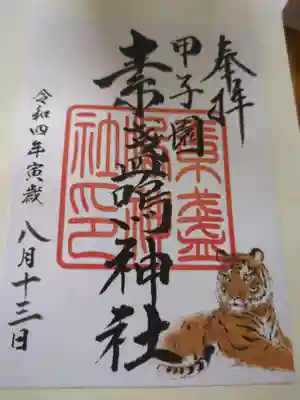 奉拝
甲子園
素盞嗚神社
令和四年寅歳
八月十三日